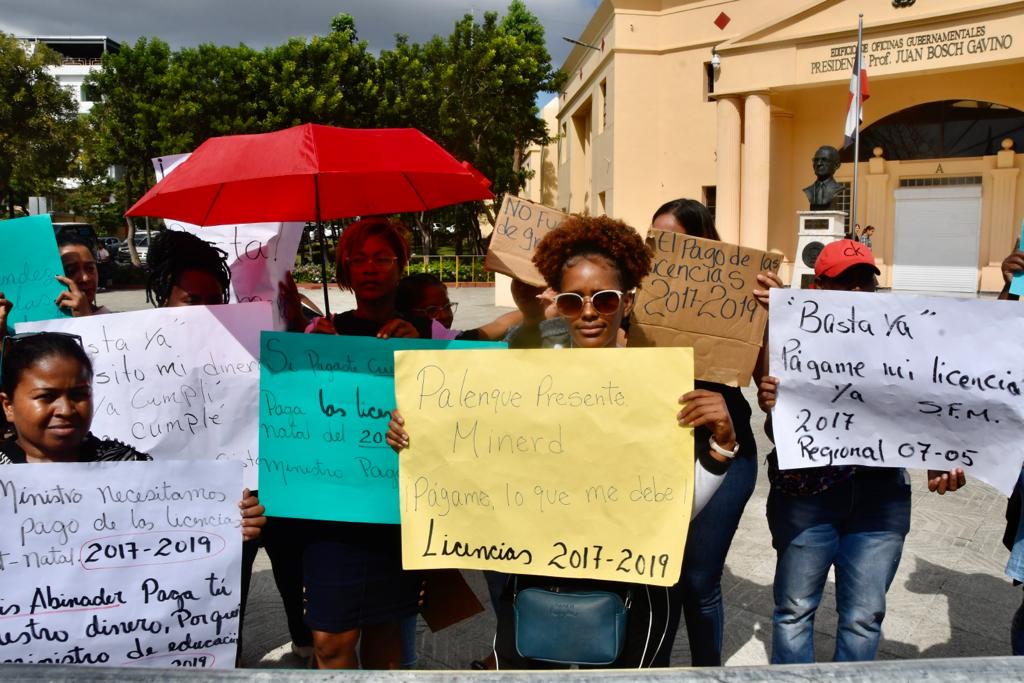 EDIFICIO DE OFICINAS GUBERNAMENTALES
PRESIDENTE Prof. JUAN BOSCH GAVINO
A
Basta!
NO
de
El Pago de las
Licencias
2017-2019
"Basta Ya"
Págame mi licencia
Ya S.F.M.
2017
Regional 07-05
sta Ya"
sito mi diner
Ya Cumplí
cumple
Si Pagaste
Paga las licen
natal del 20
ministro Paga
Palenque Presente.
Minerd
¡Págame, lo que me debe!
Licencias 2017-2019
Ministro Necesitamos
pago de las licencia
t-Natal. 2017-2019
is Abinader Paga tú
estro dinero, Porque
inistro de educació
2019